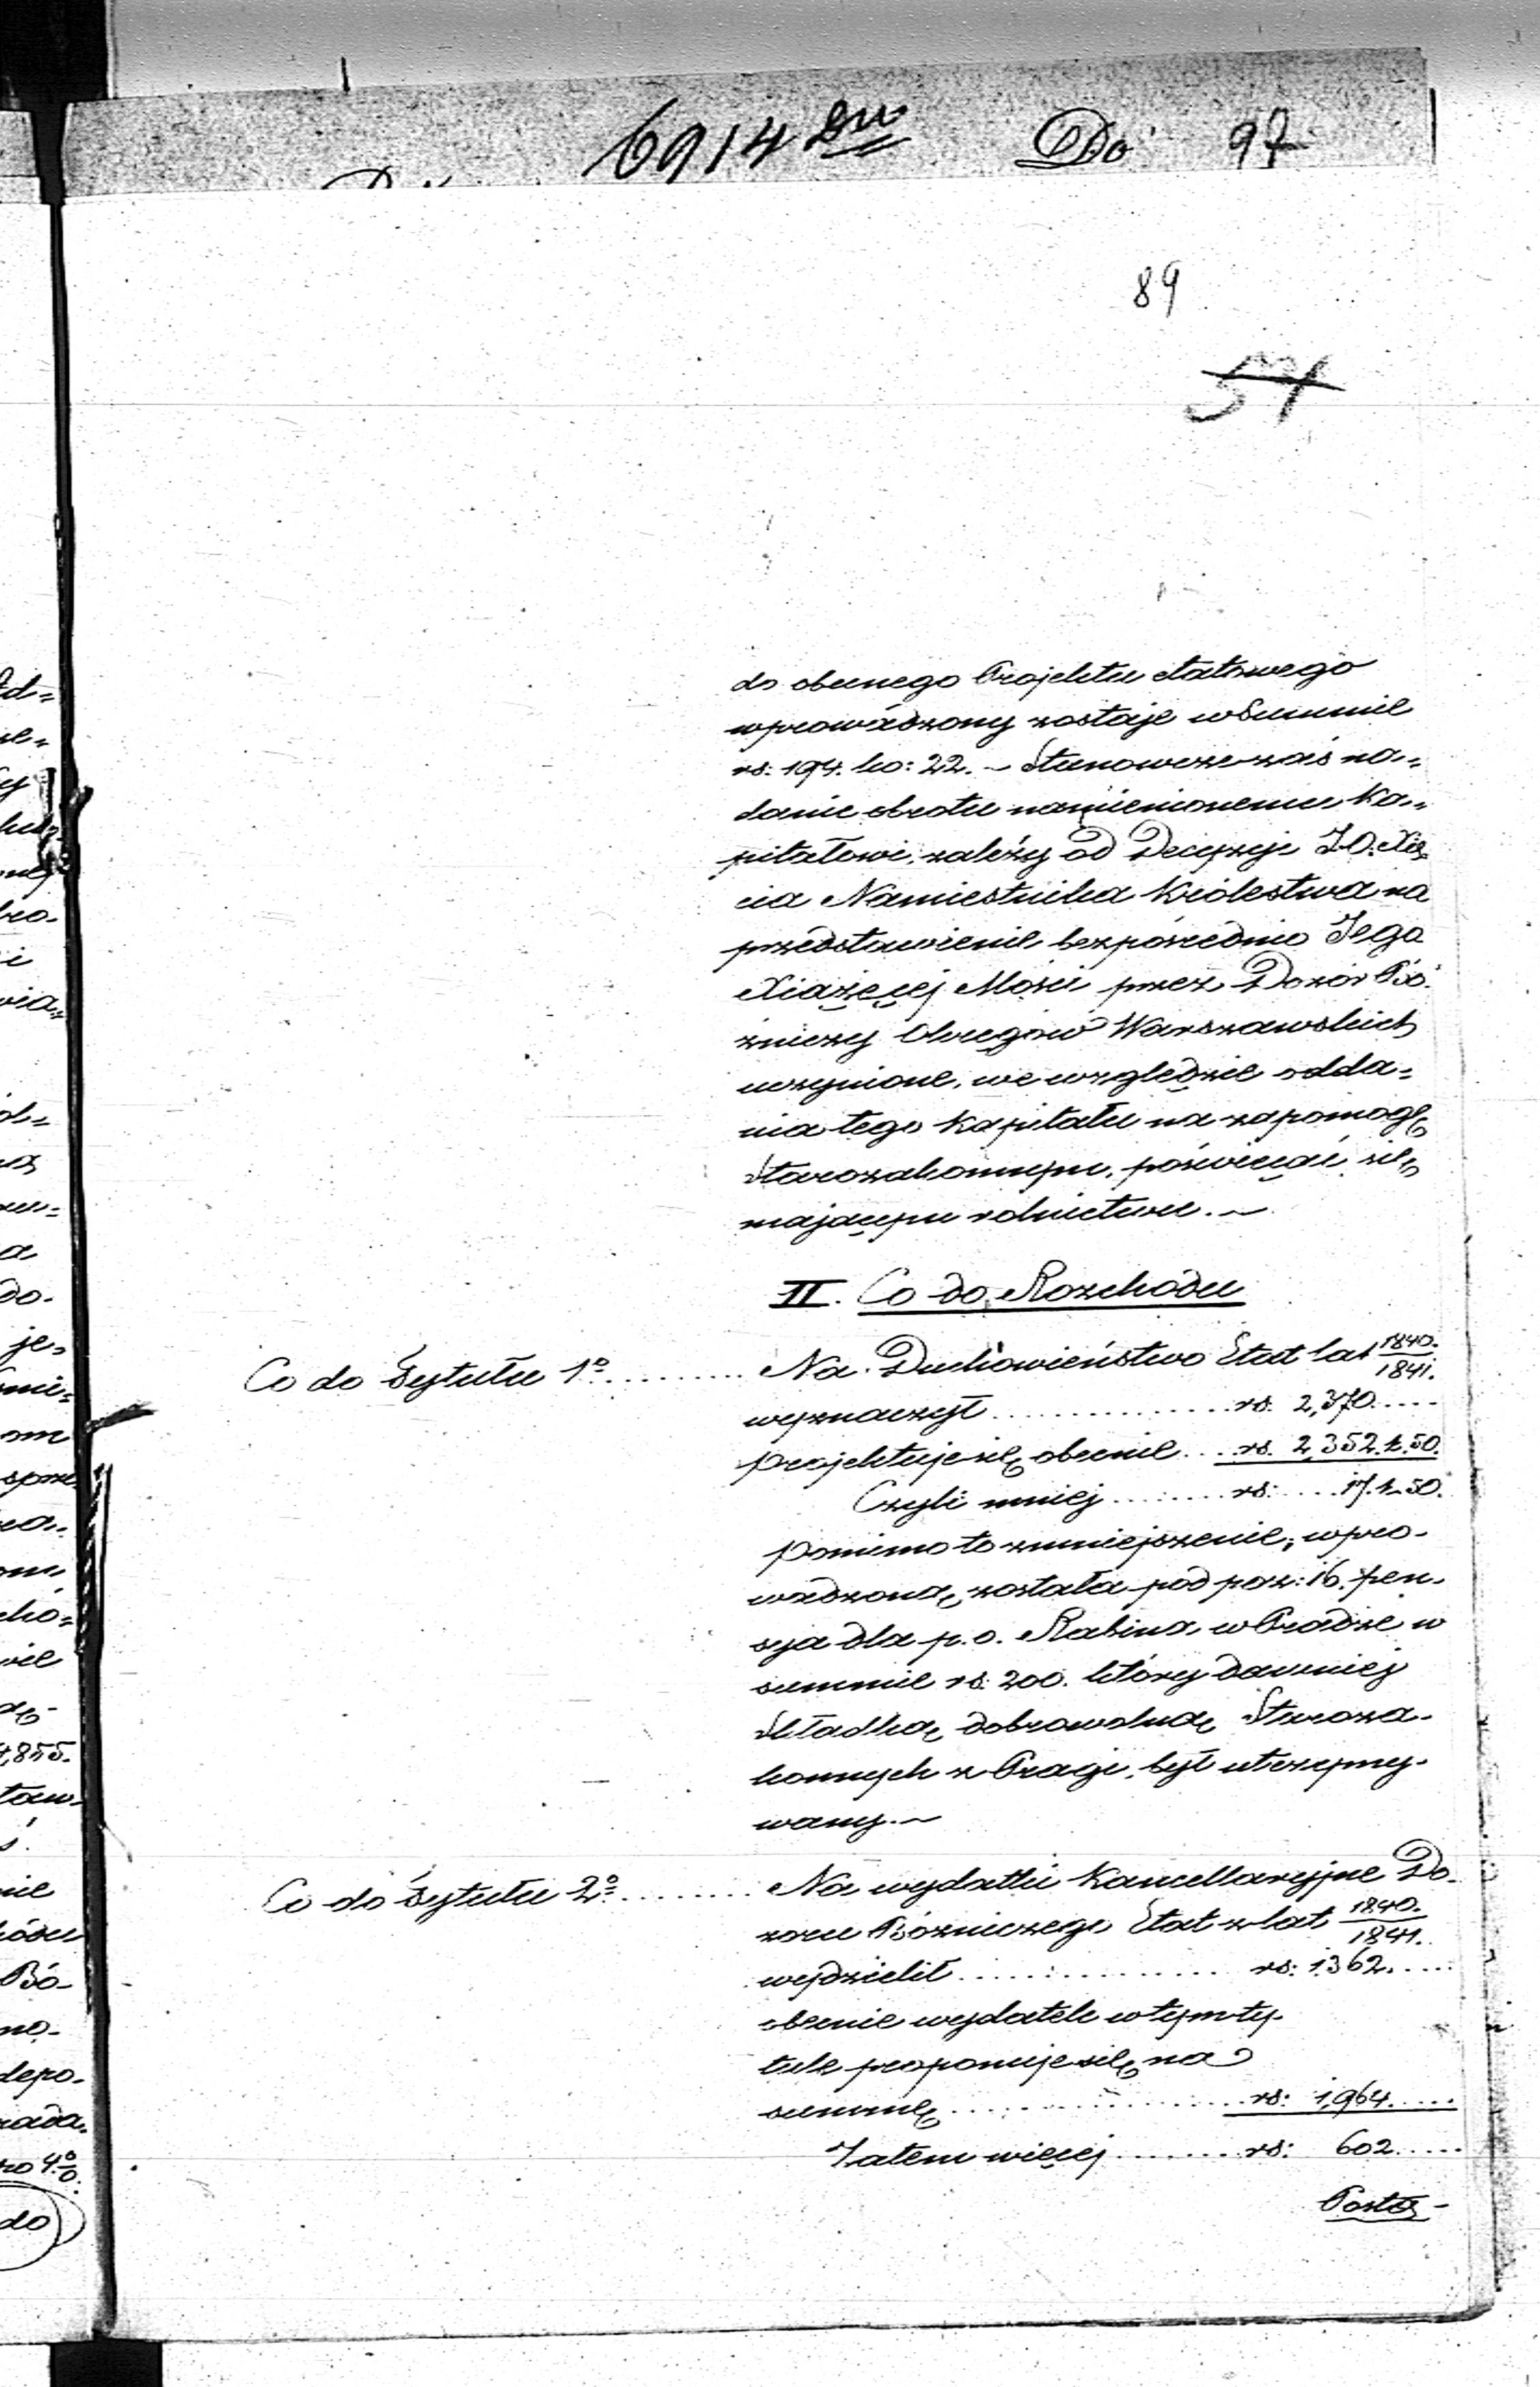 6914 Do 97
89
57
do obecnego Projektu etatowego
wprowadzony zostaje w Summie
rs: 194. ko: 22. ~ Stanowcze zaś na=
danie obrotu namienionemu Ka=
pitałowi, zależy od Decyzyi J.O. Xię
cia Namiestnika Królestwa na
przedstawienie bezpośrednio Jego
Xiążęcej Mości przez Dozór Bó
zniczy Okręgów Warszawskich
uczynione, we względzie odda=
nia tego Kapitału na zapomogę
Starozakonnym, poświęcać się
mającym rolnictwu. ~
II. Co do Rozchodu
Co do Tytułu 1º ......... Na Duchowieństwo Etat lat 1840./1841.
wyznaczył ............... rs. 2,370.....
projektuje się obecnie ... rs. 2,352. k. 50.
Czyli mniej ........ rs: .... 17. k. 50.
Pomimo to zmniejszenie, wpro-
wadzona, została pod poz: 16. pen-
sya dla p.o. Rabina w Pradze w
summie rs. 200. który dawniej
Składką dobrowolną Staroza-
konnych z Pragi, był utrzymy-
wany. ~
Co do Tytułu 2º ......... Na wydatki Kancellaryjne Do-
zoru Bózniczego Etat z lat 1840./1841.
wydzielił .................. rs: 1362.....
obecnie wydatek w tym ty-
tule proponuje się na
summę .................. rs: 1,964.....
Zatem więcej ......... rs: 602.....